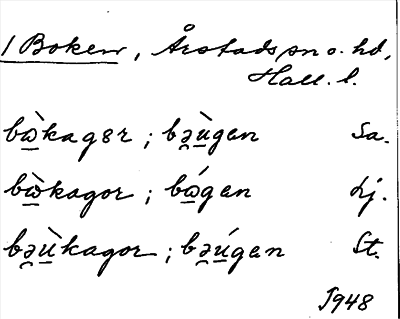 1 Boken, Årstads sn o. hd,
Hall. l.
bὼ̲kagər ; bə̯ù̲gen Sa.
bὼ̲kagor ; bώ̲gen Lj.
bə̯ù̲kagor ; bə̯ú̲gen St.
1948